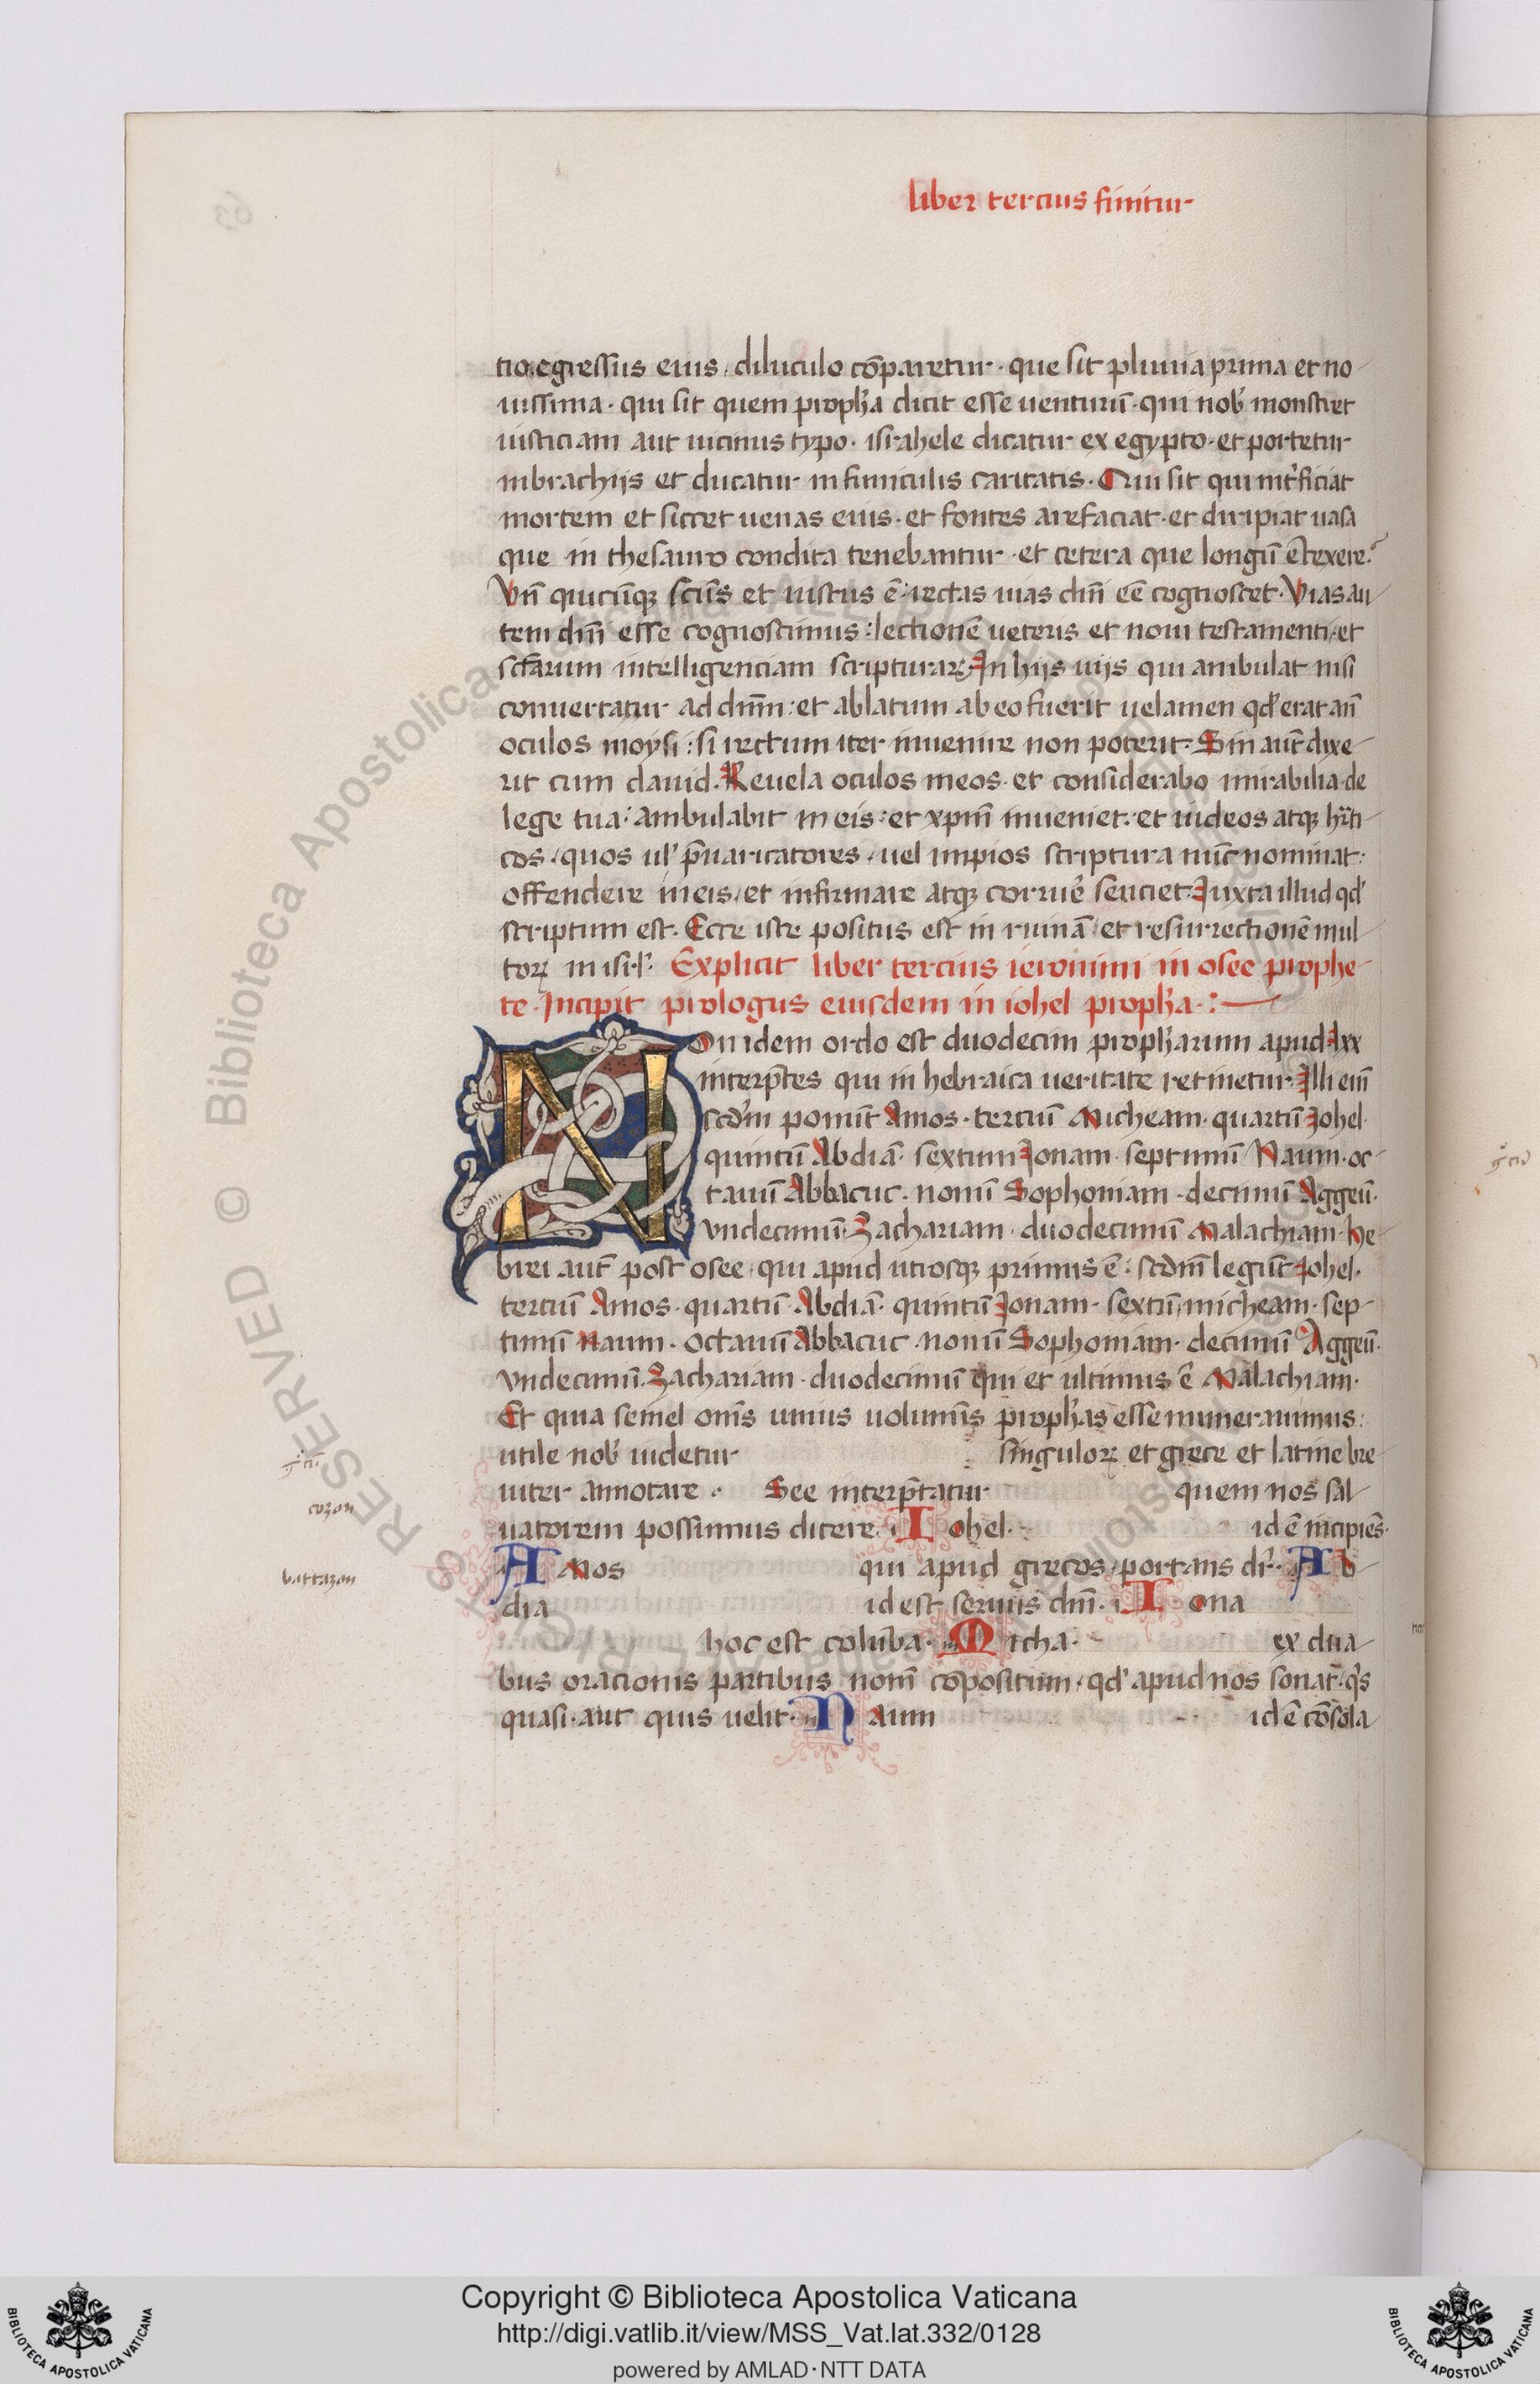 liber tercius finitur
tio egressus eius, diluculo cōparetur. que sit pluuia prima et no
uissima. qui sit quem propħa dicit esse uenturū. qui nob' monstret
iusticiam aut uicinus typo. israhele dicatur ex egypto. et portetur
in brachijs et ducatur in funiculis caritatis. Qui sit qui int'ficiat
mortem et siccet uenas eius. et fontes arefaciat. et diripiat uasa
que in thesauro condita tenebantur. et cetera que longū ē texere.
Vn̄ quicūqꝫ sciēs et iustus ē: rectas uias dn̄i eē cognoscet. Vias au
tem dn̄i esse cognoscimus: lectionē ueteris et noui testamenti, et
sc̄arum intelligenciam scripturaꝝ. In hijs uijs qui ambulat nisi
conuertatur ad dn̄m: et ablatum ab eo fuerit uelamen qd' erat an̄
oculos moysi: si rectum iter inuenire non poterit. Sin aut̄ dixe
rit cum dauid. Reuela oculos meos. et considerabo mirabilia de
lege tua: ambulabit in eis: et xp̄m inueniet. et iudeos atqꝫ hr̄ti
cos, quos ul' p̄uaricatores, uel impios scriptura nūc nominat:
offendere in eis, et infirmare atqꝫ corrue' senciet. Iuxta illud qd'
scriptum est. Ecce iste positus est in ruinā et resurrectionē mul
toꝝ in isrł. Explicit liber tercius ieronimi in osee prophe
te. Incipit prologus eiusdem in iohel propħa.:
Non idem ordo est duodecim propħarum apud lxx
interp̄tes qui in hebraica ueritate retinetur. Illi eni̅
scd'm ponūt Amos. tercıū Micheam. quartū Iohel.
quintū Abdiā. sextum Ionam. septimū Naum. oc
tauū Abbacuc. nonū Sophoniam. decimū Aggeū.
vndecimū Zachariam. duodecimū Malachiam. he
brei aut̄ post osee, qui apud utrosqꝫ primus ē: scdm̄ legūt Iohel.
terciū Amos. quartū Abdiā. quintū Ionam. sextū micheam. sep
timū Naum. octauū Abbacuc. nonū Sophoniam. decimū Aggeū.
vndecimū Zachariam. duodecimū qui et ultimus ē Malachiam.
Et quia semel om̄s unius uolumīs propħas esse munerauimus:
utile nob' uidetur singuloꝝ et grece et latine bre
uiter annotare. See interp̄tatur quem nos sal
uatorem possimus dicere. Iohel. id ē incipiēs.
Amos qui apud grecos, portans dr̄. Ab
dia id est seruus dn̄i. Iona
hoc est colūba. Micha. ex dua
bus oracionis partibus nom̄ cōpositum, qd' apud nos sonat, q's
quasi. aut quis uelit. Naum id ē cōsola
cozon
battazon
RESERVED © Biblioteca Apostolica Vaticana
Copyright © Biblioteca Apostolica Vaticana
http://digi.vatlib.it/view/MSS_Vat.lat.332/0128
powered by AMLAD·NTT DATA
BIBLIOTECA APOSTOLICA VATICANA
BIBLIOTECA APOSTOLICA VATICANA